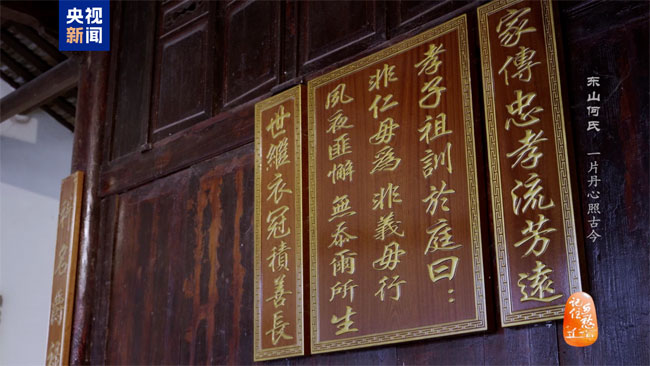 央视
新闻
东山何氏 一片丹心照古今
家傳忠孝流芳遠
孝子祖訓於庭曰：
非仁毋為 非義毋行
夙夜匪懈 無忝爾所生
世繼衣冠積善長
记住
乡愁